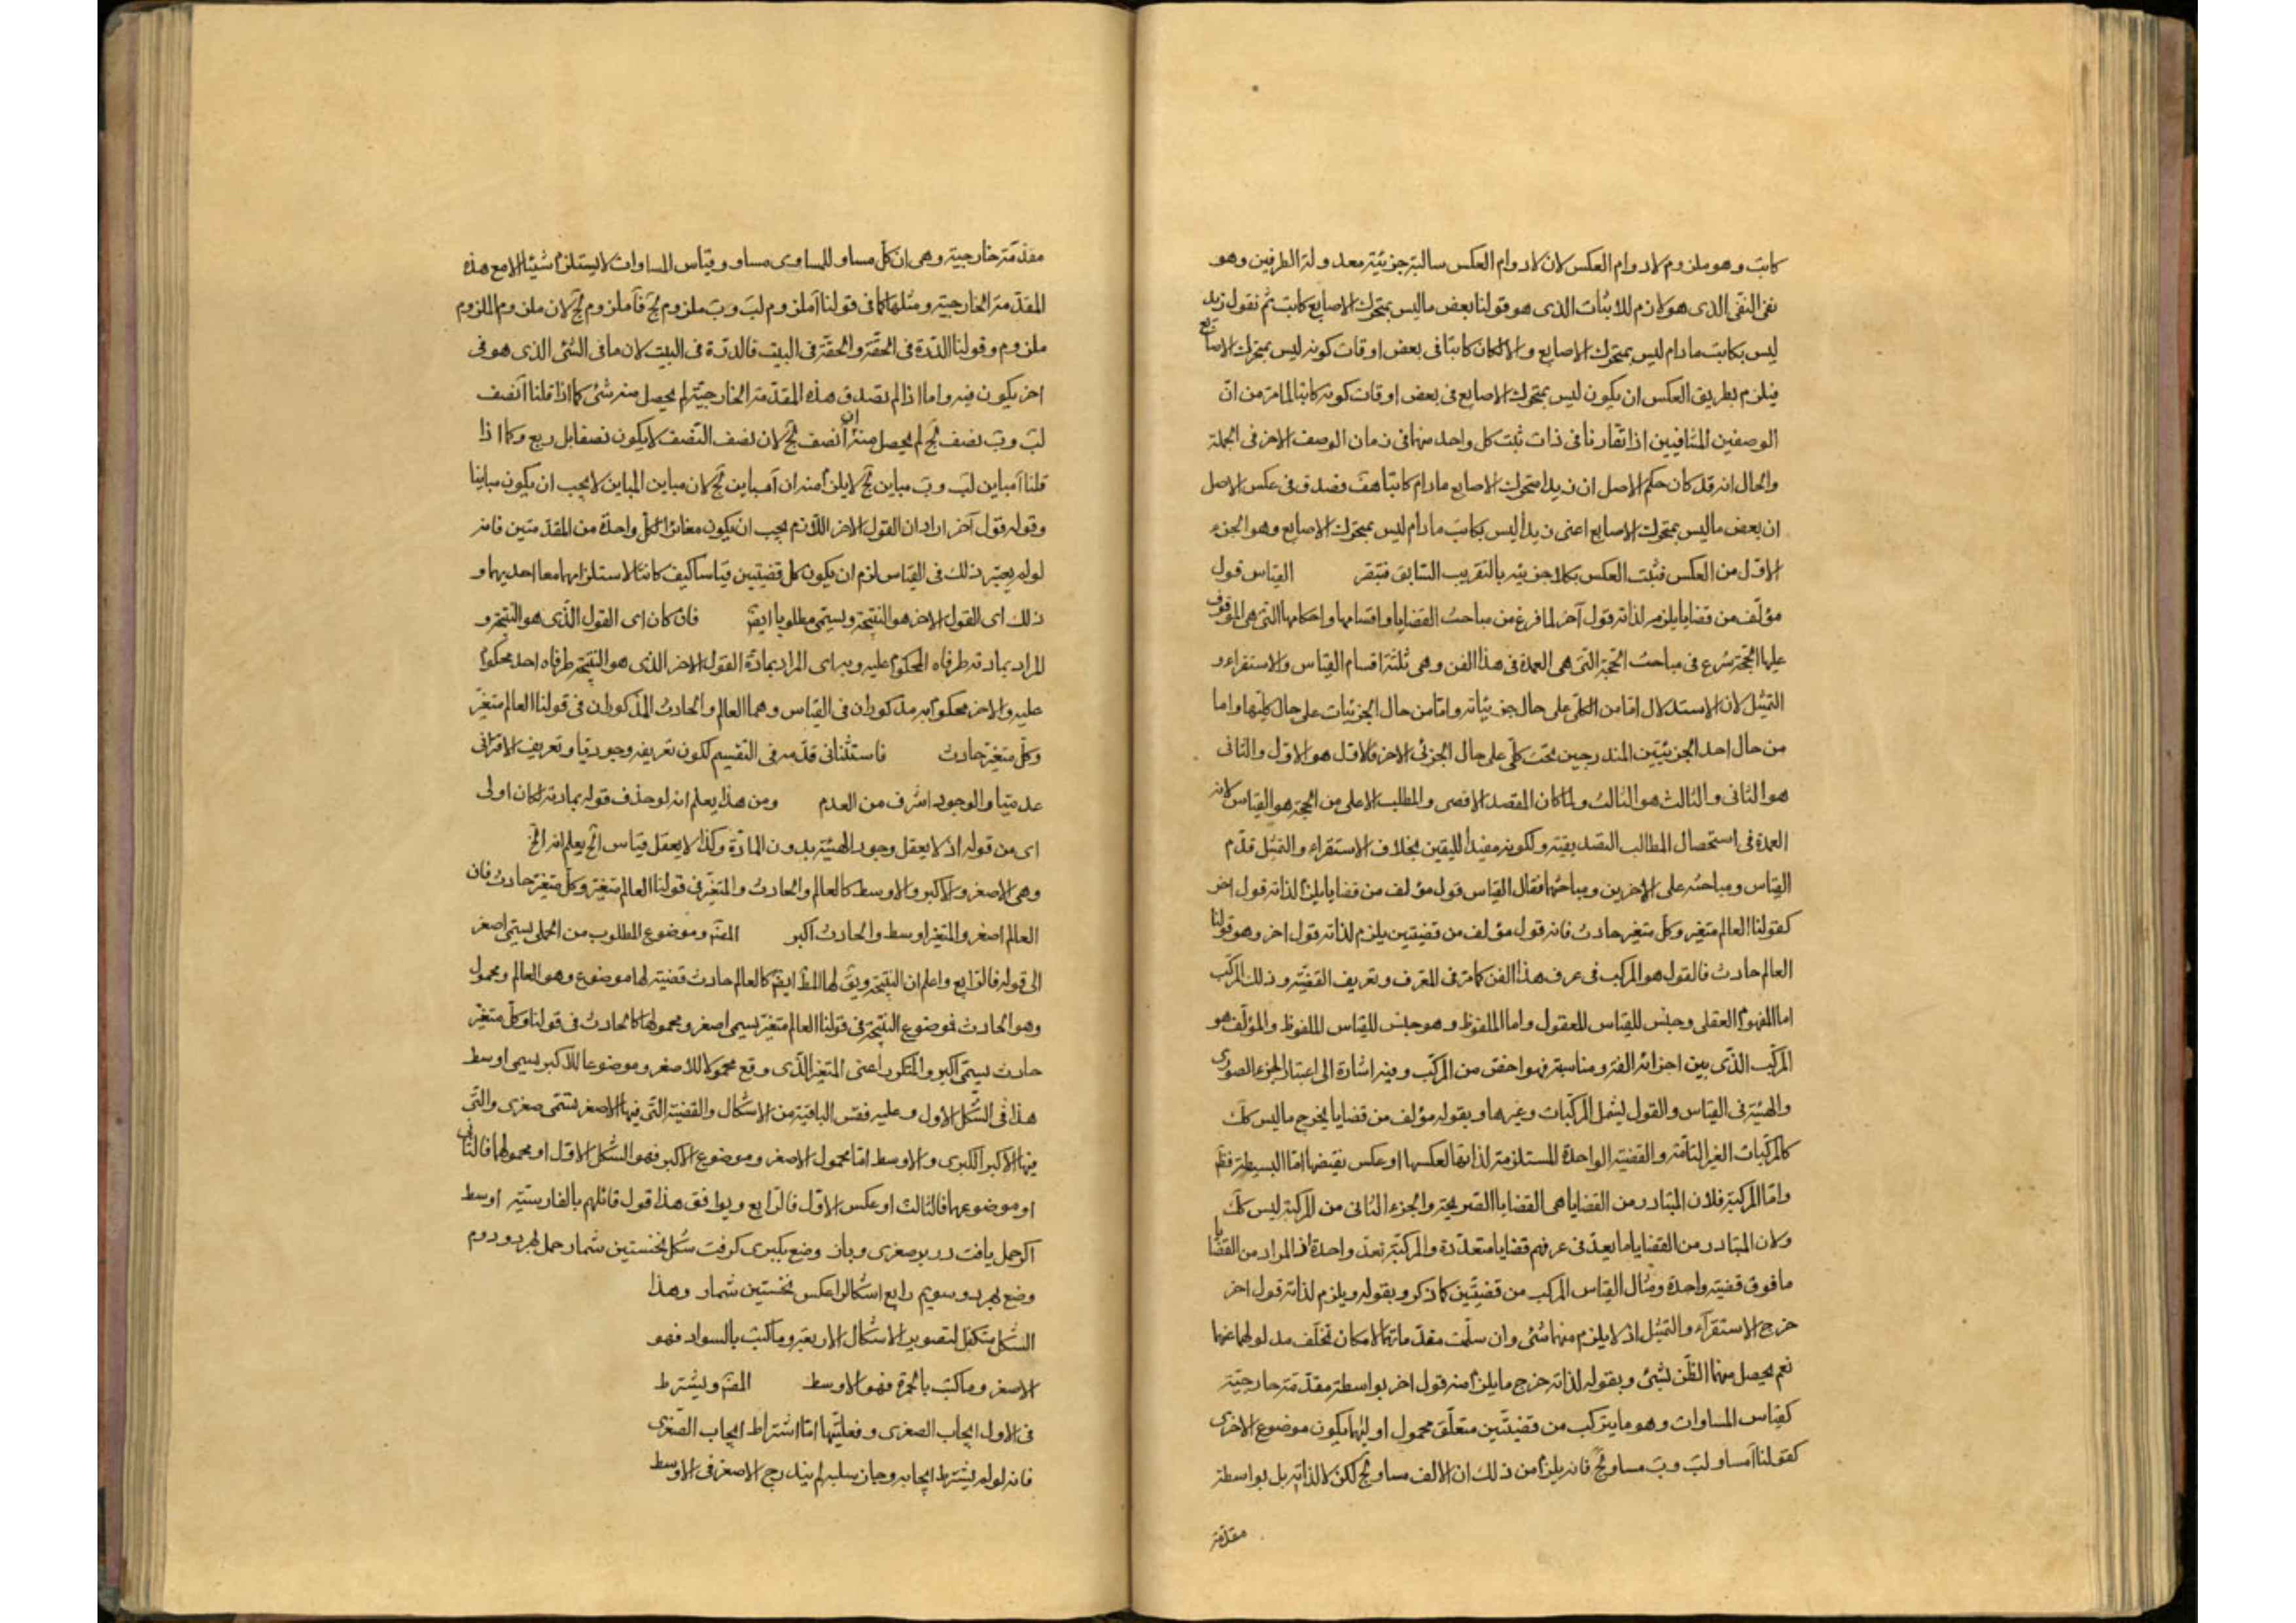 كاتب وهو ملزوم لادوام العكس لان لادوام العكس سالبة جزئية معدولة الطرفين وهو
نفى النفى الذى هو لازم للاثبات الذى هو قولنا بعض ما ليس بمتحرك الاصابع كاتب ثم نقول زيد
ليس بكاتب مادام ليس بمتحرك الاصابع والا لكان كاتبا فى بعض اوقات كونه ليس بمتحرك الاصابع
فيلزم بطريق العكس ان يكون ليس بمتحرك الاصابع فى بعض اوقات كونه كاتبا لما مر من ان
الوصفين المتنافيين اذا تقارنا فى ذات ثبت كل واحد منهما فى زمان الوصف الاخر فى الجملة
والحال انه قد كان حكم الاصل ان زيدا متحرك الاصابع مادام كاتبا هف فصدق فى عكس الاصل
ان بعض ما ليس بمتحرك الاصابع اعنى زيدا ليس بكاتب مادام ليس بمتحرك الاصابع وهو الجزء
الاول من العكس فثبت العكس بكلا جزئيه بالتقريب السابق فتبصر القياس قول
مؤلف من قضايا يلزمه لذاته قول آخر لما فرغ من مباحث القضايا واقسامها واحكامها التى هى الموقوف
عليها الحجة شرع فى مباحث الحجة التى هى العمدة فى هذا الفن وهى ثلثة اقسام القياس والاستقراء و
التمثيل لان الاستدلال اما من الكلى على حال جزئياته واما من حال الجزئيات على حال كليها واما
من حال احد الجزئيين المندرجين تحت كلى على حال الجزئى الاخر فالاول هو الاول والثانى
هو الثانى والثالث هو الثالث ولما كان المقصد الاقصى والمطلب الاعلى من الحجة هو القياس لانه
العمدة فى استحصال المطالب التصديقية ولكونه مفيدا لليقين بخلاف الاستقراء والتمثيل قدم
القياس ومباحثه على الاخرين ومباحثهما فقال القياس قول مؤلف من قضايا يلزم لذاته قول اخر
كقولنا العالم متغير وكل متغير حادث فانه قول مؤلف من قضيتين يلزم لذاته قول اخر وهو قولنا
العالم حادث فالقول هو المركب فى عرف هذا الفن كما مر فى المعرف وتعريف القضية وذلك المركب
اما المفهوم العقلى وجنس للقياس المعقول واما الملفوظ وهو جنس للقياس الملفوظ والمؤلف هو
المركب الذى بين اجزائه الفة ومناسبة فهو اخص من المركب وفيه اشارة الى اعتبار الجزء الصورى
والهيئة فى القياس والقول ليشمل المركبات وغيرها وبقوله مؤلف من قضايا يخرج ما ليس كك
كالمركبات الغير التامة والقضية الواحدة المستلزمة لذاتها لعكسها او عكس نقيضها اما البسيطة فظ
واما المركبة فلان المتبادر من القضايا هى القضايا الصريحة والجزء الثانى من المركبة ليس كك
ولان المتبادر من القضايا ما يعد فى عرفهم قضايا متعددة والمركبة تعد واحدة اذ المراد من القضايا
مافوق قضية واحدة ومثال القياس المركب من قضيتين كما ذكر وبقوله ويلزم لذاته قول اخر
خرج الاستقراء والتمثيل اذ لا يلزم منهما شئ وان سلمت مقدماتهما لامكان تخلف مدلولهما عنهما
نعم يحصل منهما الظن لشئ وبقوله لذاته خرج ما يلزم منه قول اخر بواسطة مقدمة خارجية
كقياس المساوات وهو ما يتركب من قضيتين متعلق محمول اوليهما يكون موضوع الاخرى
كقولنا آ مساو لب وب مساو لج فانه يلزم من ذلك ان الالف مساو لج لكن لا لذاته بل بواسطة
مقدمة
مقدمة خارجية وهى ان كل مساو للمساوى مساو وقياس المساوات لا يستلزم شيئا الا مع هذه
المقدمة الخارجية ومثلها كما فى قولنا آ ملزوم لب وب ملزوم لج فآ ملزوم لج لان ملزوم الملزوم
ملزوم وقولنا الدرة فى الحقة والحقة فى البيت فالدرة فى البيت لان ما فى الشئ الذى هو فى
اخر يكون فيه واما اذا لم تصدق هذه المقدمة الخارجية لم يحصل منه شئ كما اذا قلنا آ نصف
لب وب نصف لج لم يحصل منه ان آ نصف لج لان نصف النصف لا يكون نصفا بل ربع وكما اذا
قلنا آ مباين لب وب مباين لج لا يلزم منه ان آ مباين لج لان مباين المباين لا يجب ان يكون مباينا
وقوله قول آخر اراد ان القول الاخر اللازم يجب ان يكون مغائرا لكل واحدة من المقدمتين فانه
لو لم يعتبر ذلك فى القياس لزم ان يكون كل قضيتين قياسا كيف كانتا لاستلزامهما معا احديهما و
ذلك اى القول الاخر هو النتيجة ويسمى مطلوبا ايض فان كان اى القول الذى هو النتيجة و
المراد بمادته طرفاه المحكوم عليه وبه اى المراد بمادة القول الاخر الذى هو النتيجة طرفاه احد محكوم
عليه والاخر محكوم به مذكوران فى القياس وهما العالم والحادث المذكوران فى قولنا العالم متغير
وكل متغير حادث فاستثنائى قدمه فى التقسيم لكون تعريفه وجوديا وتعريف الاقترانى
عدميا والوجود اشرف من العدم ومن هذا يعلم انه لو حذف قوله بمادته لكان اولى
اى من قوله اذ لا يعقل وجود الهيئة بدون المادة وكذا لا يعقل قياس الخ يعلم انه الخ
وهى الاصغر والاكبر والاوسط كالعالم والحادث والمتغير فى قولنا العالم متغير وكل متغير حادث فان
العالم اصغر والمتغير اوسط والحادث اكبر المصنف وموضوع المطلوب من الحملى يسمى اصغر
الى قوله فالرابع واعلم ان النتيجة ويق لها المط ايض كالعالم حادث قضية لها موضوع وهو العالم ومحمول
وهو الحادث فموضوع النتيجة فى قولنا العالم متغير يسمى اصغر ومحمولها كالحادث فى قولنا وكل متغير
حادث يسمى اكبر والمتكرر اعنى المتغير الذى وقع محمولا للاصغر وموضوعا للاكبر يسمى اوسط
هذا فى الشكل الاول وعليه فقس الباقية من الاشكال والقضية التى فيها الاصغر تسمى صغرى والتى
فيها الاكبر الكبرى والاوسط اما محمول الاصغر وموضوع الاكبر فهو الشكل الاول او محمولها فالثانى
او موضوعهما فالثالث او عكس الاول فالرابع ويوافق هذا قول قائلهم بالفارسية اوسط
اگر حمل يافت در بر صغرى وباز وضع بكبرى گرفت شكل نخستين شمار حمل بهر دو دوم
وضع بهر دو سويم رابع اشكال را عكس نخستين شمار وهذا
الشكل متكفل لتصوير الاشكال الاربعة وما كتب بالسواد فهو
الاصغر وما كتب بالحمرة فهو الاوسط المصنف ويشترط
فى الاول ايجاب الصغرى وفعليتها اما اشتراط ايجاب الصغرى
فانه لو لم يشترط ايجابه وجاز سلبه لم يندرج الاصغر فى الاوسط